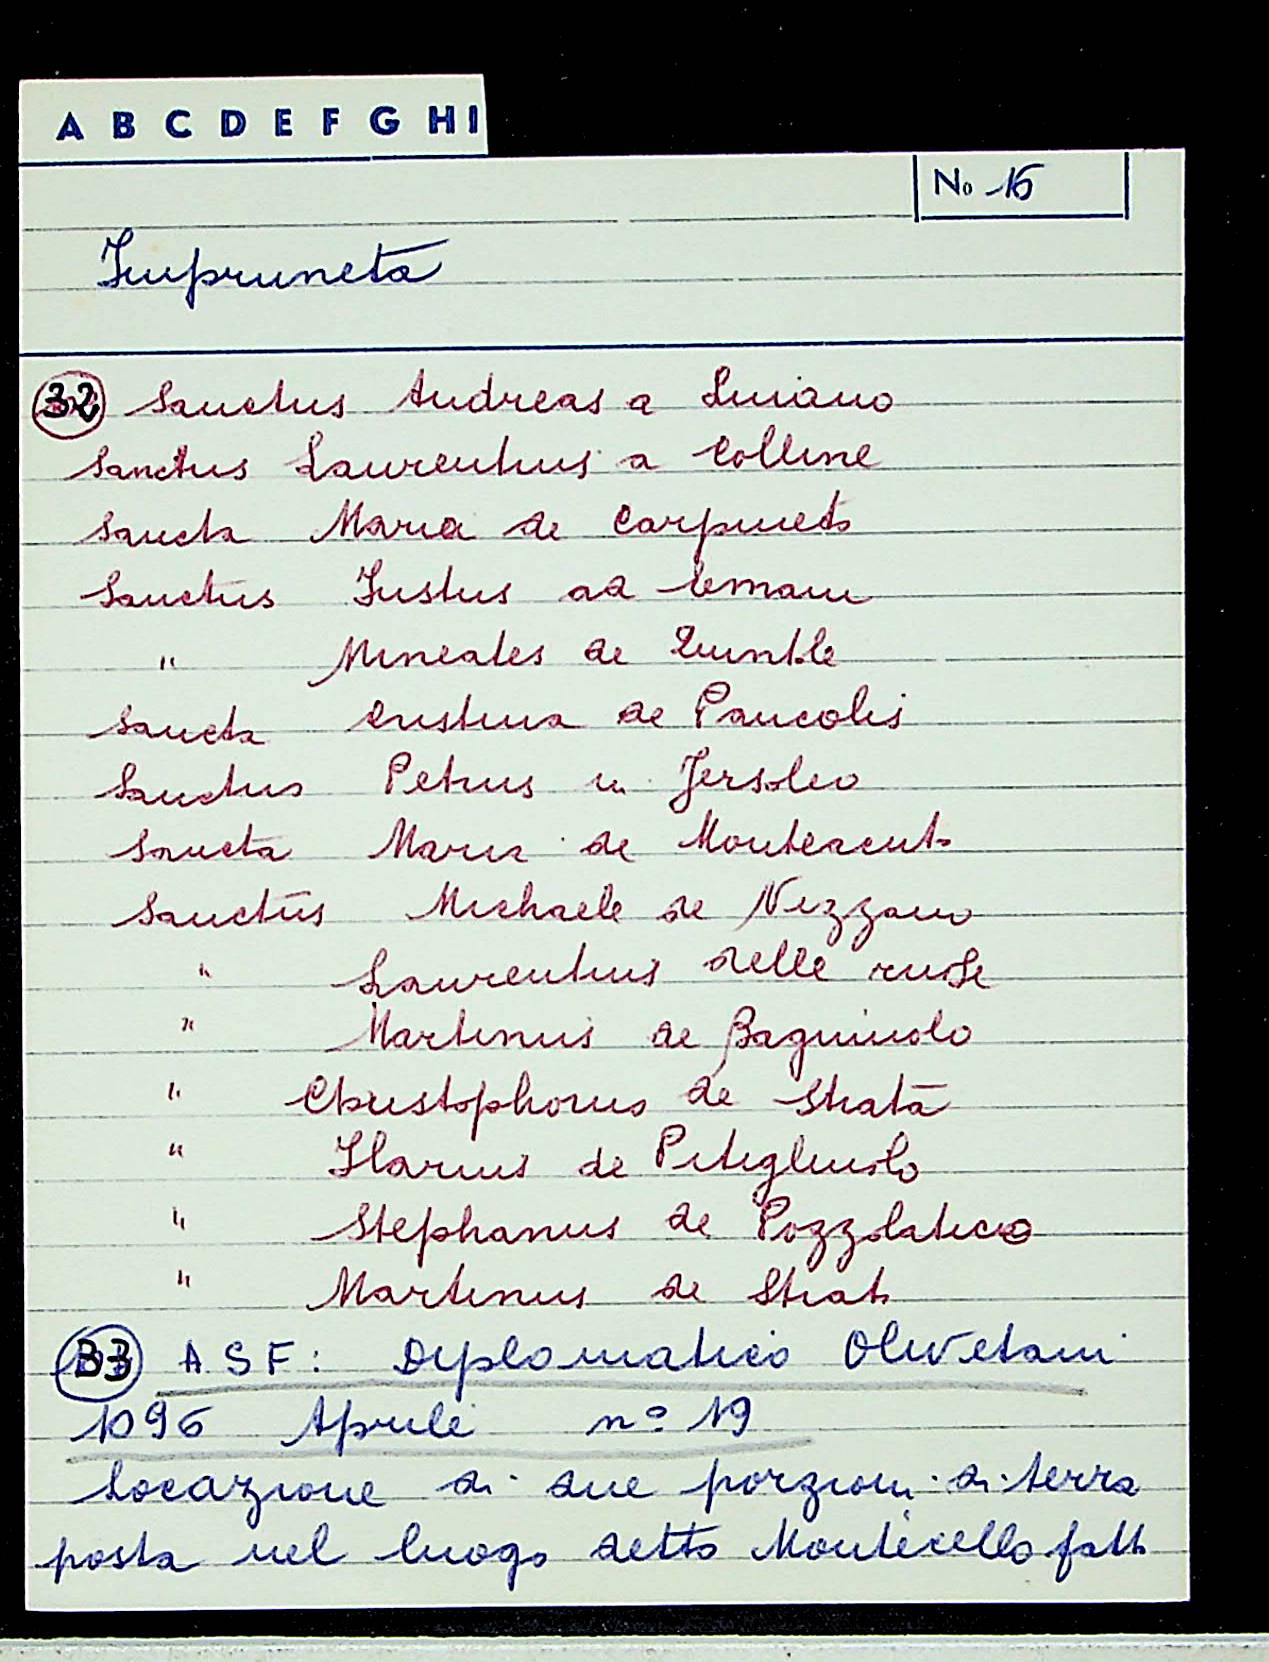 A B C D E F G H I
No 16
Impruneta
32 Sanctus Andreas a Luiano
Sanctus Laurentius a Colline
Sancta Maria de Carpineto
Sanctus Iustus ad Emam
" Mineates de Quintole
Sancta Cristina de Pancolis
Sanctus Petrus in Jersoleo
Sancta Maria de Monteacuto
Sanctus Michaele de Nizzano
" Laurentius delle ruose
" Martinus de Bagnuolo
" Christophorus de Strata
" Ilarius de Pitigliuolo
" Stephanus de Pozzolatico
" Martinus de Strata
33 A S F : Diplomatico Olivetani
1096 Aprile n° 19
Locazione di due porzioni di terra
posta nel luogo detto Monticello fatta